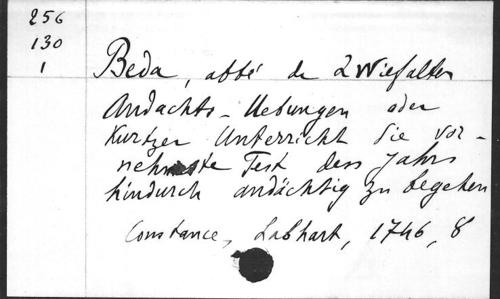 256
130
1
Beda, abbé de Zwiefalten
Andachts-Uebungen oder
Kurtzer Unterricht die vor-
nehmste Fest dess Jahrs
hindurch andächtig zu begehen
Constance, Labhart, 1746, 8